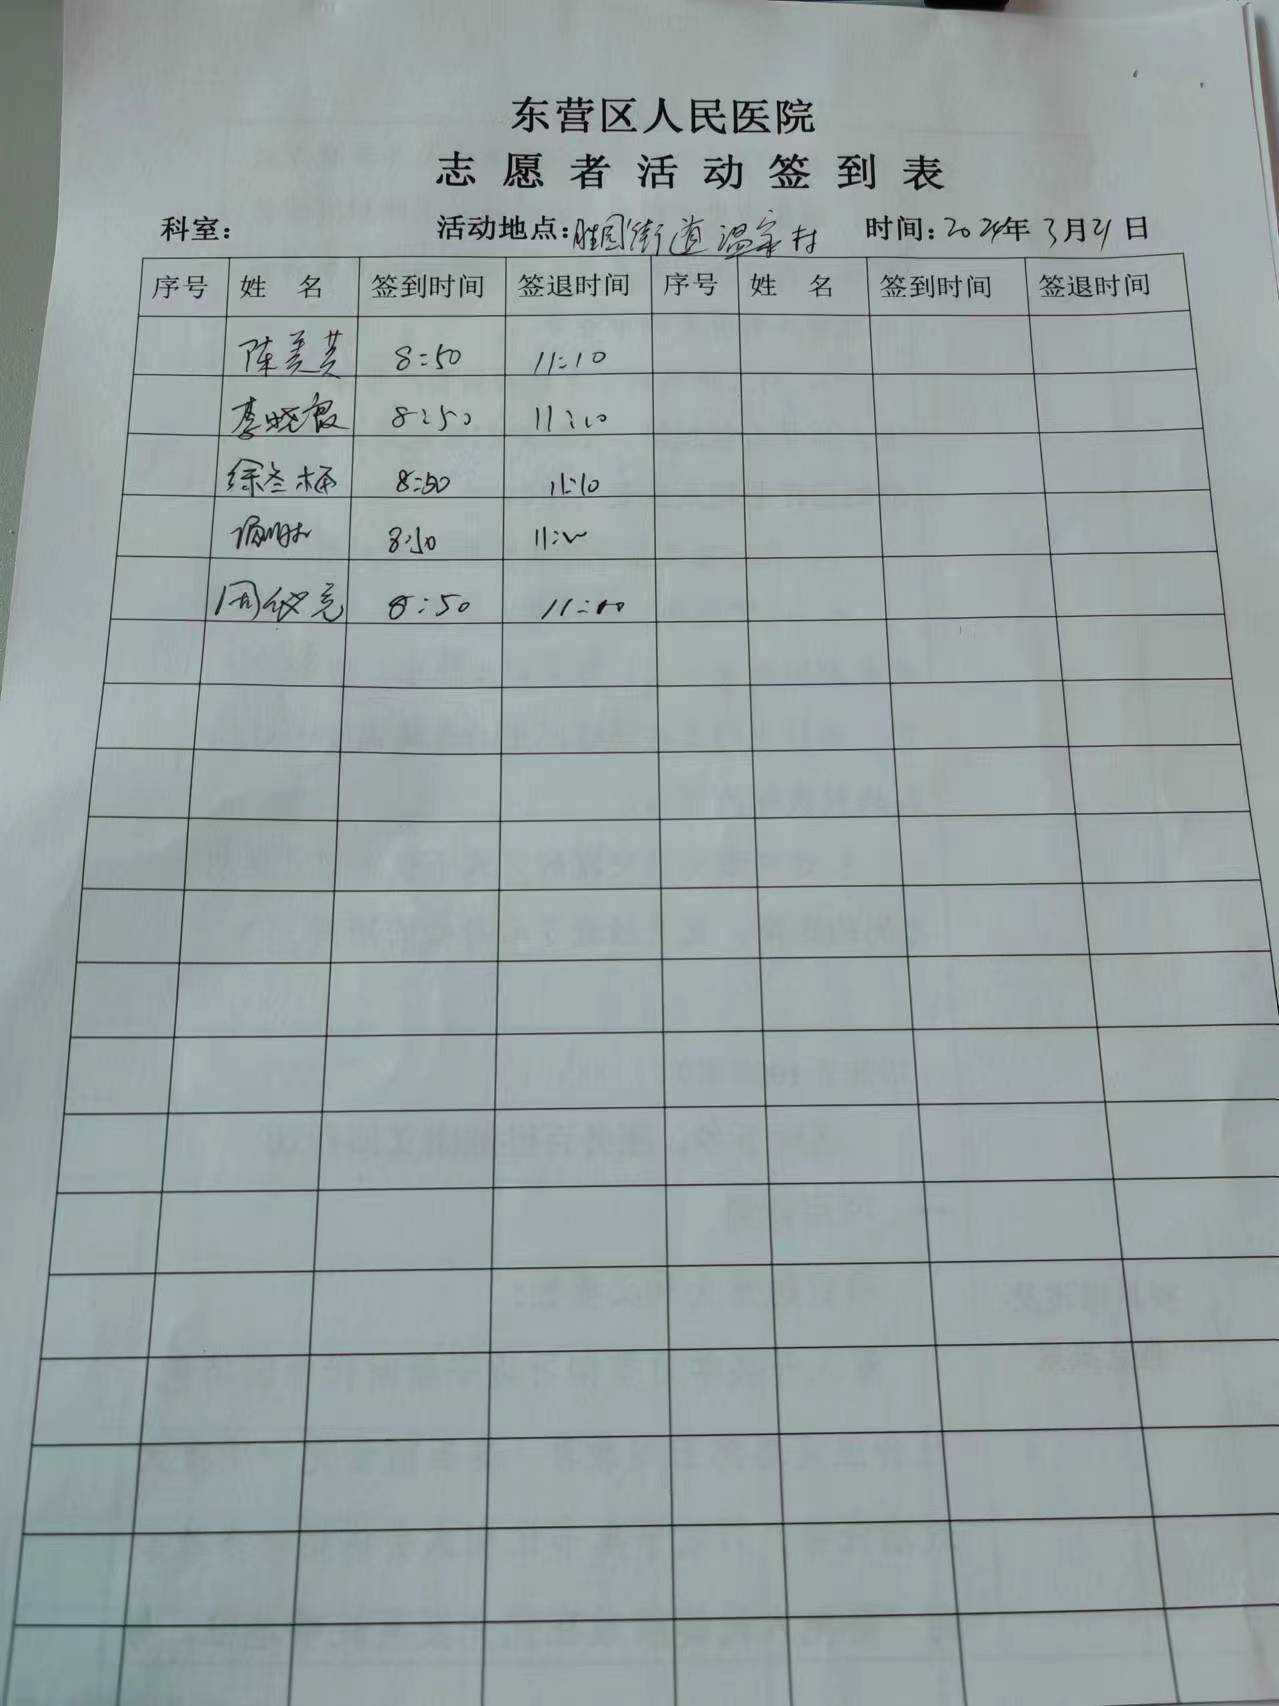 东营区人民医院
志愿者活动签到表
科室： 活动地点：胜园街道温家村 时间：2024年3月21日
序号 姓 名 签到时间 签退时间 序号 姓 名 签到时间 签退时间
陈美芸 8:50 11:10
李晓霞 8:50 11:10
徐冬梅 8:50 11:10
8:50
周 亮 8:50 11:10